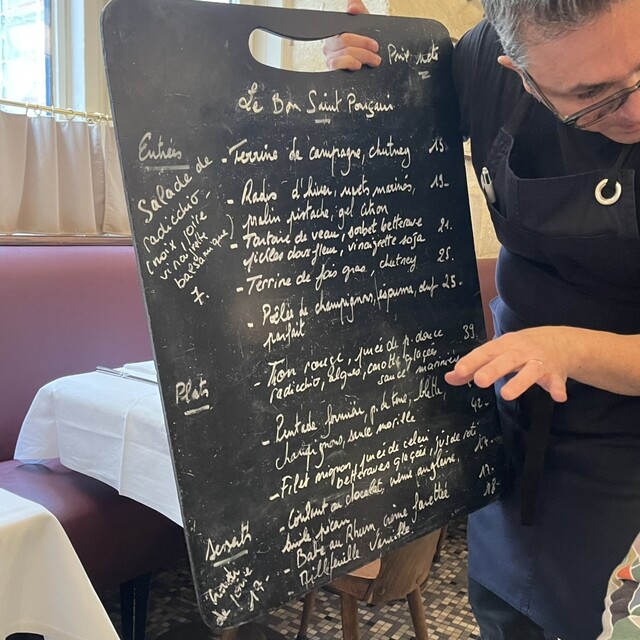 Prix nets
Le Bon Saint Pourçain
Entrées
- Terrine de campagne, chutney 15.
- Radis d'hiver, navets marinés, 19.
pralin pistache, gel citron
- Tartare de veau, sorbet betterave 21.
pickles chou fleur, vinaigrette soja
- Terrine de foie gras, chutney 25.
- Poêlée de champignons, espuma, œuf 25.
parfait
Salade de
radicchio
(noix, poire
vinaigrette
balsamique)
7.
Plats
- Thon rouge, purée de p. douce 39.
radicchio, algues, carottes glaçées
sauce marinière
- Pintade fermière, p. de terre, blette,
champignons, sauce morille 42.
- Filet mignon, purée de celeri
betteraves glaçées, jus de roti
Desserts
Coulant au chocolat, crème anglaise,
- Baba au Rhum, crème fouettée 17.
- Millefeuille Vanille 18.
de poire
17.